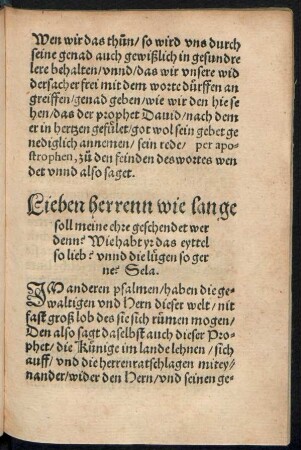 Wen wir das thün/ so wird vns durch
seine genad auch gewißlich in gesundre
lere behalten/ vnnd/ das wir vnsere wid
dersacher frei mit dem worte dürffen an
greiffen/ genad geben/ wie wir den hie se
hen/ das der prophet Dauid/ nach dem
er in hertzen gefület/ got wol sein gebet ge
nediglich annemen/ sein rede/ per apo-
strophen, zů den feinden des wortes wen
det vnnd also saget.
Lieben herrenn wie lange
soll meine ehre geschendet wer
denn? Wie habt yr das eyttel
so lieb? vnnd die lügen so ger
ne? Sela.
IN anderen psalmen/ haben die ge-
waltigen vnd Hern dieser welt/ nit
fast groß lob des sie sich rümen mogen/
Den also sagt daselbst auch dieser Pro-
phet/ die Künige im lande lehnen/ sich
auff/ vnd die herren ratschlagen mitey-
nander/ wider den Hern/ vnd seinen ge-